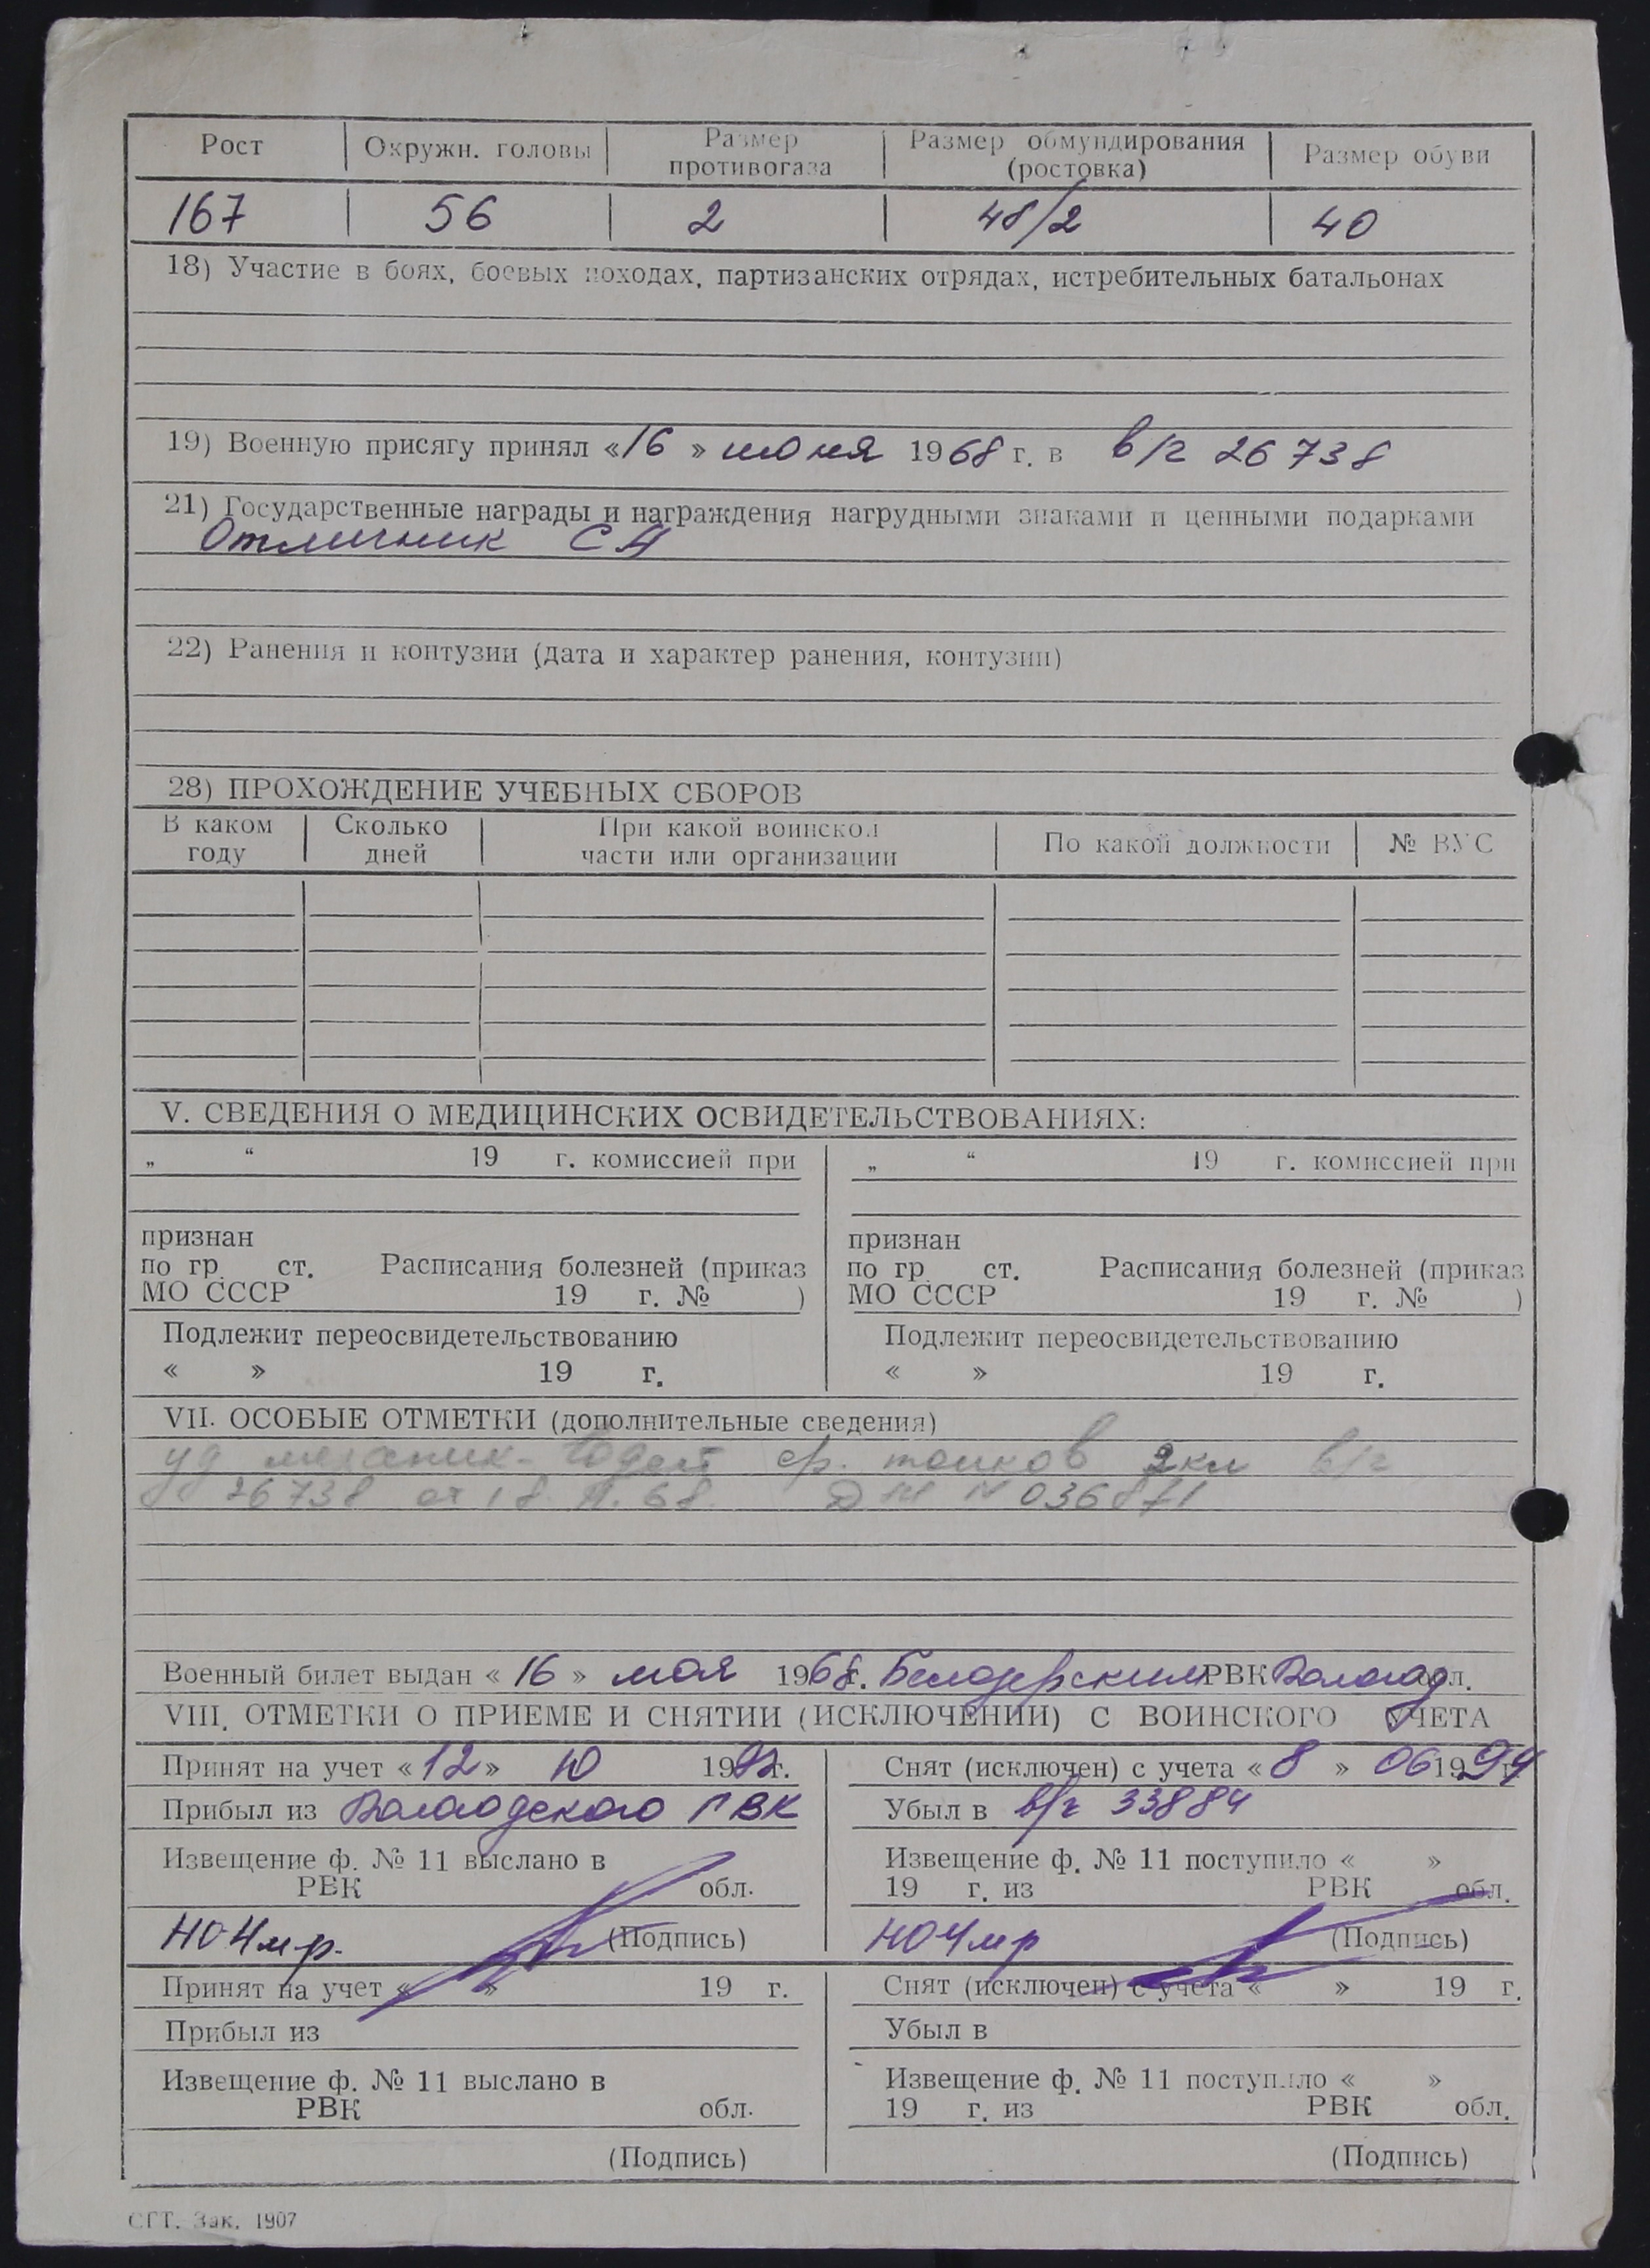 Рост Окружн. головы Размер противогаза Размер обмундирования (ростовка) Размер обуви
167 56 2 48/2 40
18) Участие в боях, боевых походах, партизанских отрядах, истребительных батальонах
19) Военную присягу принял «16» июня 1968 г. в в/г 26738
21) Государственные награды и награждения нагрудными знаками и ценными подарками
Отличник СА
22) Ранения и контузии (дата и характер ранения, контузии)
28) ПРОХОЖДЕНИЕ УЧЕБНЫХ СБОРОВ
В каком году Сколько дней При какой воинской части или организации По какой должности № ВУС
V. СВЕДЕНИЯ О МЕДИЦИНСКИХ ОСВИДЕТЕЛЬСТВОВАНИЯХ:
„ “ 19 г. комиссией при „ “ 19 г. комиссией при
признан признан
по гр. ст. Расписания болезней (приказ по гр. ст. Расписания болезней (приказ
МО СССР 19 г. № ) МО СССР 19 г. № )
Подлежит переосвидетельствованию Подлежит переосвидетельствованию
« » 19 г. « » 19 г.
VII. ОСОБЫЕ ОТМЕТКИ (дополнительные сведения)
уд механик-водит ср. танков 2кл в/г
26738 от 18. 68 № 036871
Военный билет выдан «16» мая 1968г. Белозерским РВК Вологод обл.
VIII. ОТМЕТКИ О ПРИЕМЕ И СНЯТИИ (ИСКЛЮЧЕНИИ) С ВОИНСКОГО УЧЕТА
Принят на учет «12» 10 1992г. Снят (исключен) с учета «8» 06 1994 г.
Прибыл из Вологодского ГВК Убыл в в/г 33884
Извещение ф. № 11 выслано в Извещение ф. № 11 поступило « »
РВК обл. 19 г. из РВК обл.
НО4мр. (Подпись) НО4мр (Подпись)
Принят на учет « » 19 г. Снят (исключен) с учета « » 19 г.
Прибыл из Убыл в
Извещение ф. № 11 выслано в Извещение ф. № 11 поступило « »
РВК обл. 19 г. из РВК обл.
(Подпись) (Подпись)
СГТ. Зак. 1907